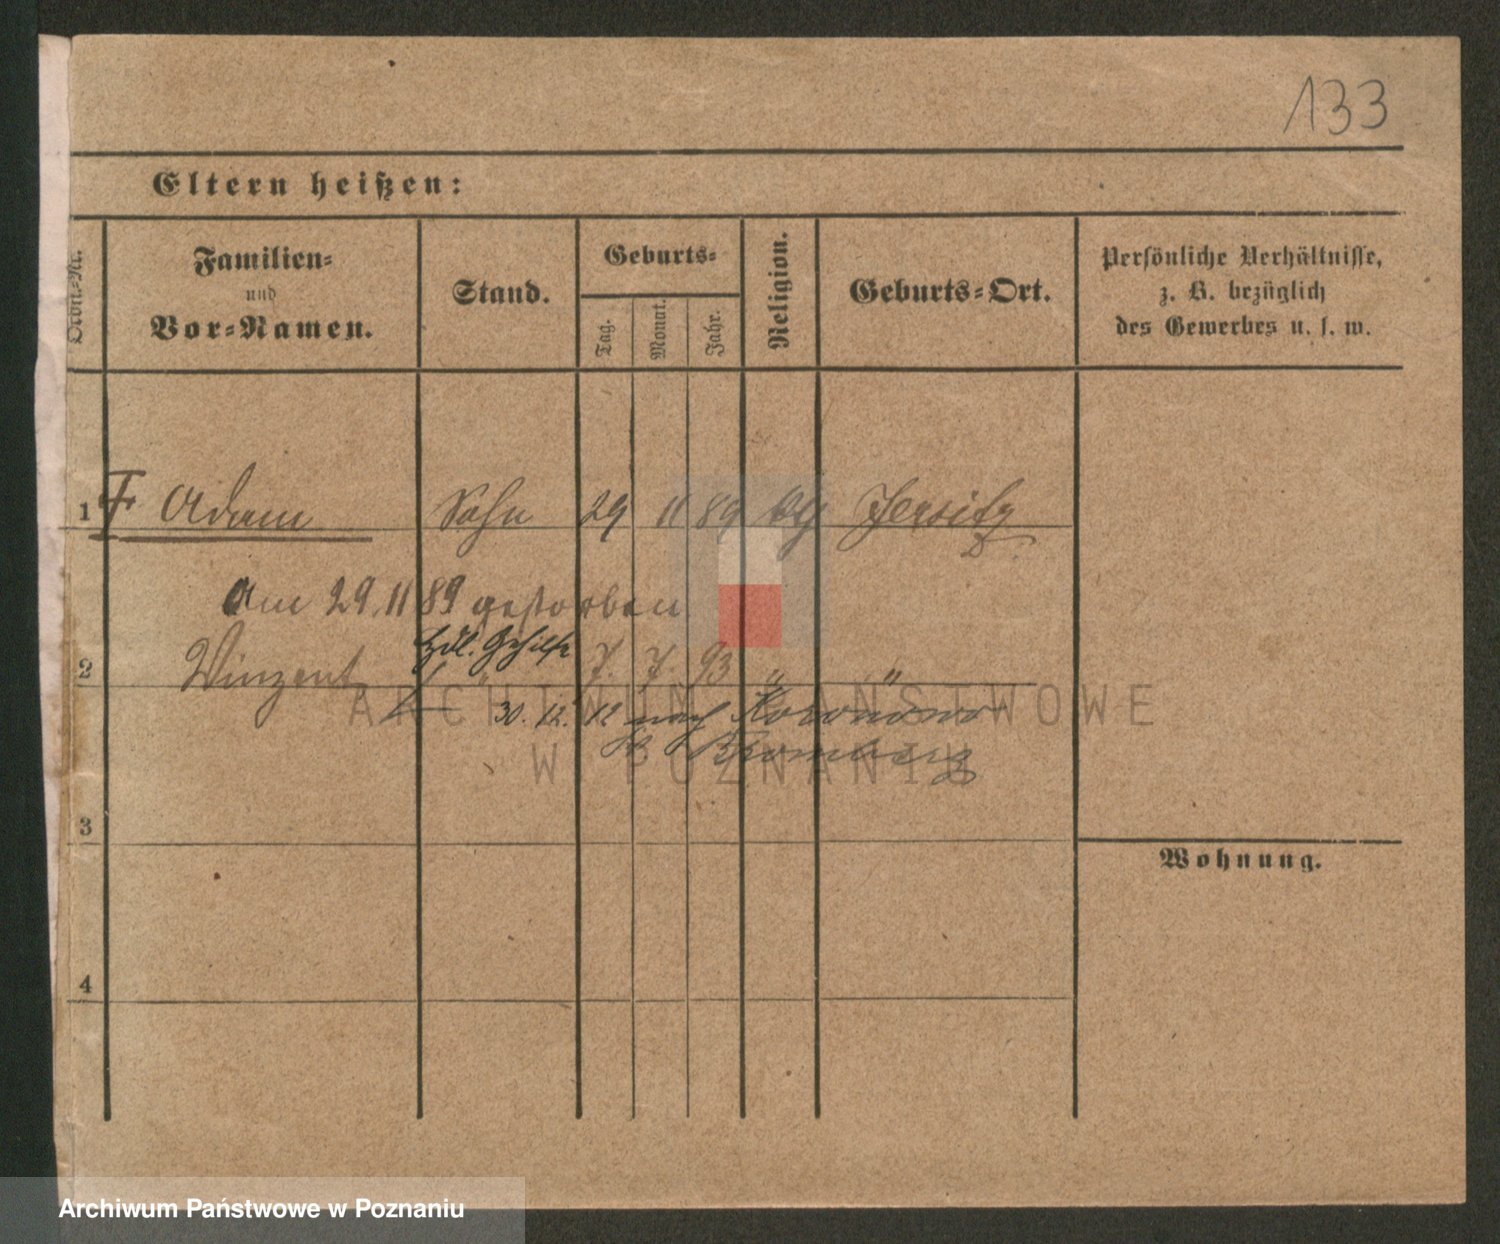 133
Eltern heißen:
Ordn.-Nr.
Familien-
und
Vor-Namen.
Stand.
Geburts-
Tag.
Monat.
Jahr.
Religion.
Geburts-Ort.
Persönliche Verhältnisse,
z. B. bezüglich
des Gewerbes u. s. w.
1 Adam Sohn 29 11 89 Jersitz
Am 29.11 89 gestorben
Hdl. Gehilfe
2 Winzent 7. 7. 93 " "
30. 12. 12 nach Koronowo
Bromberg
3
Wohnung.
4
ARCHIWUM PAŃSTWOWE
W POZNANIU
Archiwum Państwowe w Poznaniu